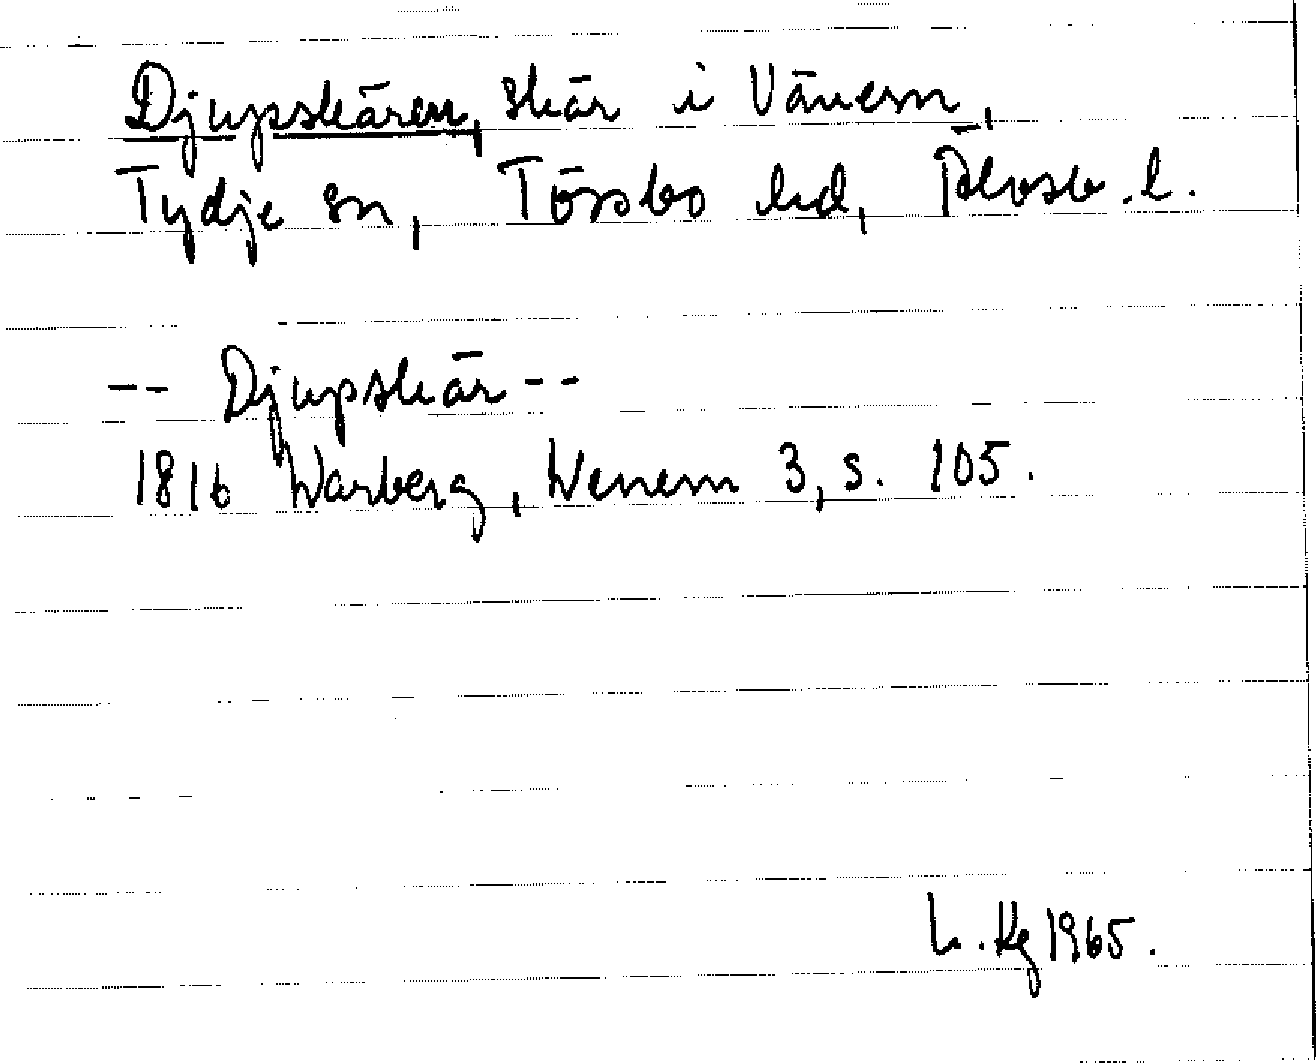 Djupskären, skär i Vänern,
Tydje sn, Tössbo hd, Älvsb. l.
-- Djupskär --
1816 Warberg, Wenern 3, s. 105.
L. Kg 1965.